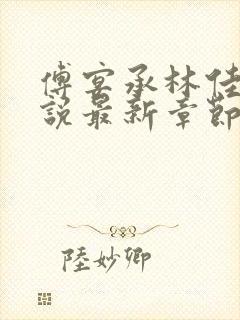 傅宴承林佳
說最新章節
陸妙卿